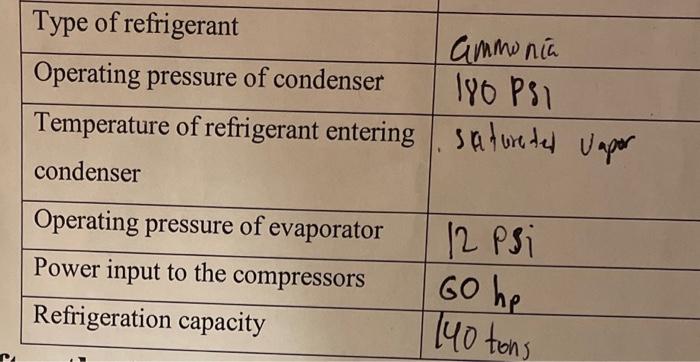 Type of refrigerant
ammonia
Operating pressure of condenser
180 PSI
Temperature of refrigerant entering
condenser
saturated vapor
Operating pressure of evaporator
12 PSi
Power input to the compressors
60 hp
Refrigeration capacity
140 tons